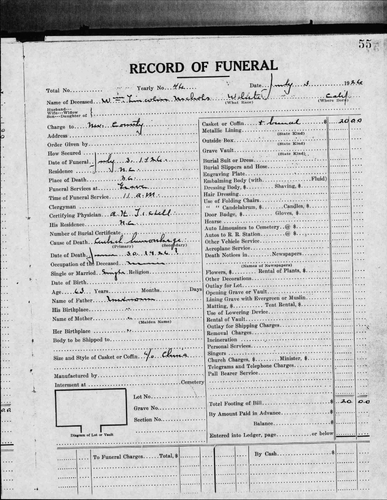 55
RECORD OF FUNERAL
Total No. Yearly No. 46 Date July 3 1926
Name of Deceased Wm Lincoln Nichols Calif
Husband—
Wife—Widow
Son—Daughter of (What Race) (Where Born)
Charge to Nev. County
Address
Order Given by
How Secured
Date of Funeral July 3. 1926.
Residence N.C.
Place of Death N.C.
Funeral Services at Grave
Time of Funeral Service 11 a.m.
Clergyman
Certifying Physician
His Residence N.C.
Number of Burial Certificate
Cause of Death Cerebral hemorrhage
(Primary) (Secondary)
Date of Death June 30. 1926
Occupation of the Deceased Miner
Single or Married Single Religion
Date of Birth
Age 63 Years Months Days
Name of Father Unknown
His Birthplace "
Name of Mother "
(Maiden Name)
Her Birthplace "
Body to be Shipped to
Size and Style of Casket or Coffin
Manufactured by
Interment at Cemetery
Lot No.
Grave No.
Section No.
Diagram of Lot or Vault
Casket or Coffin & burial $ 20 00
Metallic Lining
(State Kind)
Outside Box
(State Kind)
Grave Vault
(State Kind)
Burial Suit or Dress
Burial Slippers and Hose
Engraving Plate
Embalming Body (with Fluid)
Dressing Body, $ Shaving, $
Hair Dressing
Use of Folding Chairs
" " Candelabrum, $ Candles, $
Door Badge, $ Gloves, $
Hearse
Auto Limousines to Cemetery @ $
Autos to R. R. Station @ $
Other Vehicle Service
Aeroplane Service
Death Notices in Newspapers
(Names of Newspapers)
Flowers, $ Rental of Plants, $
Other Decorations
Outlay for Lot
Opening Grave or Vault
Lining Grave with Evergreen or Muslin
Matting, $ Tent Rental, $
Use of Lowering Device
Rental of Vault
Outlay for Shipping Charges
Removal Charges
Incineration
Personal Services
Singers
Church Charges, $ Minister, $
Telegrams and Telephone Charges
Pall Bearer Service
Total Footing of Bill $ 20 00
By Amount Paid in Advance
Balance $
Entered into Ledger, page or below
To Funeral Charges. Total, $ By Cash. $